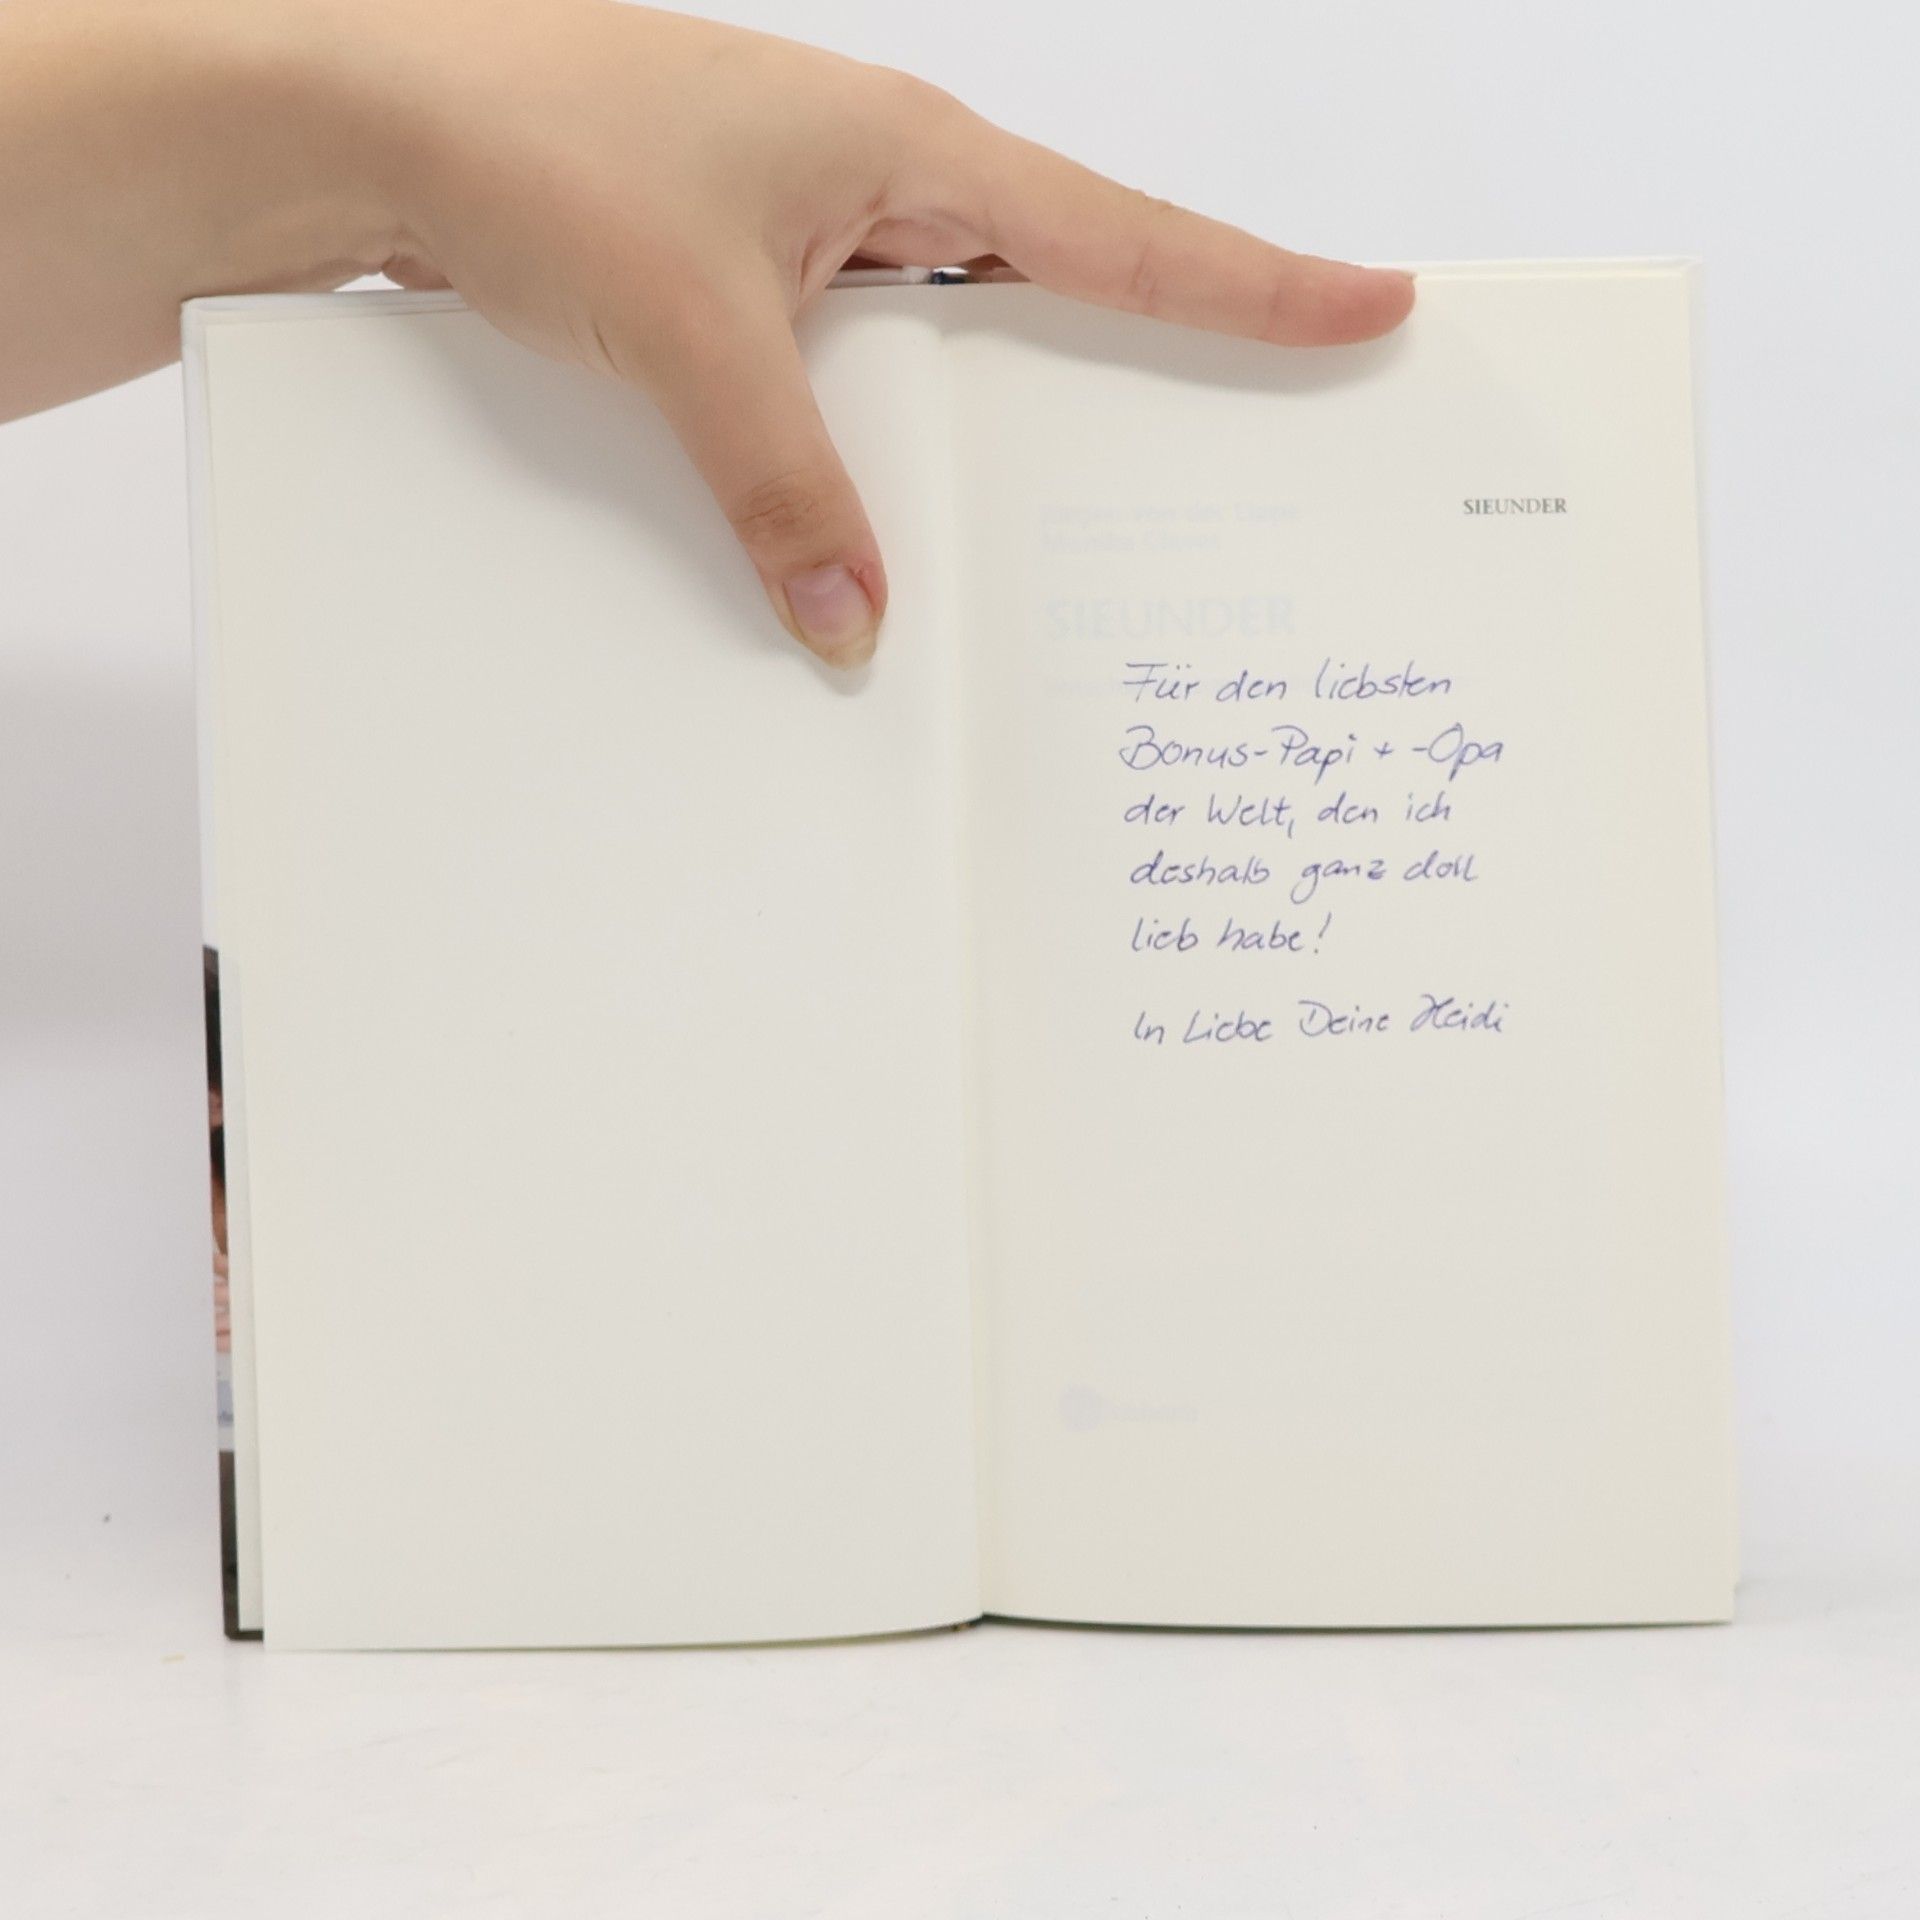 SIEUNDER
Jürgen von der Lippe
Monika Cleves
SIEUNDER
Für den liebsten
Bonus-Papi + -Opa
der Welt, den ich
deshalb ganz doll
lieb habe!
In Liebe Deine Heidi